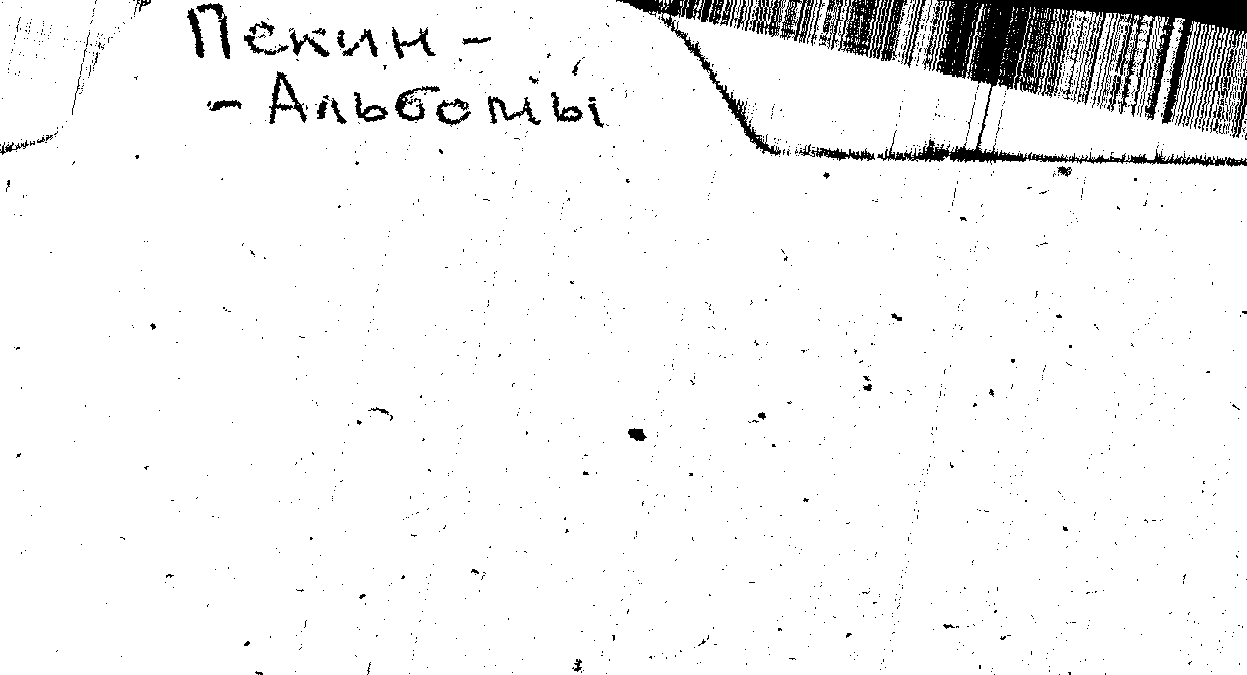 Пекин -
- Альбомы